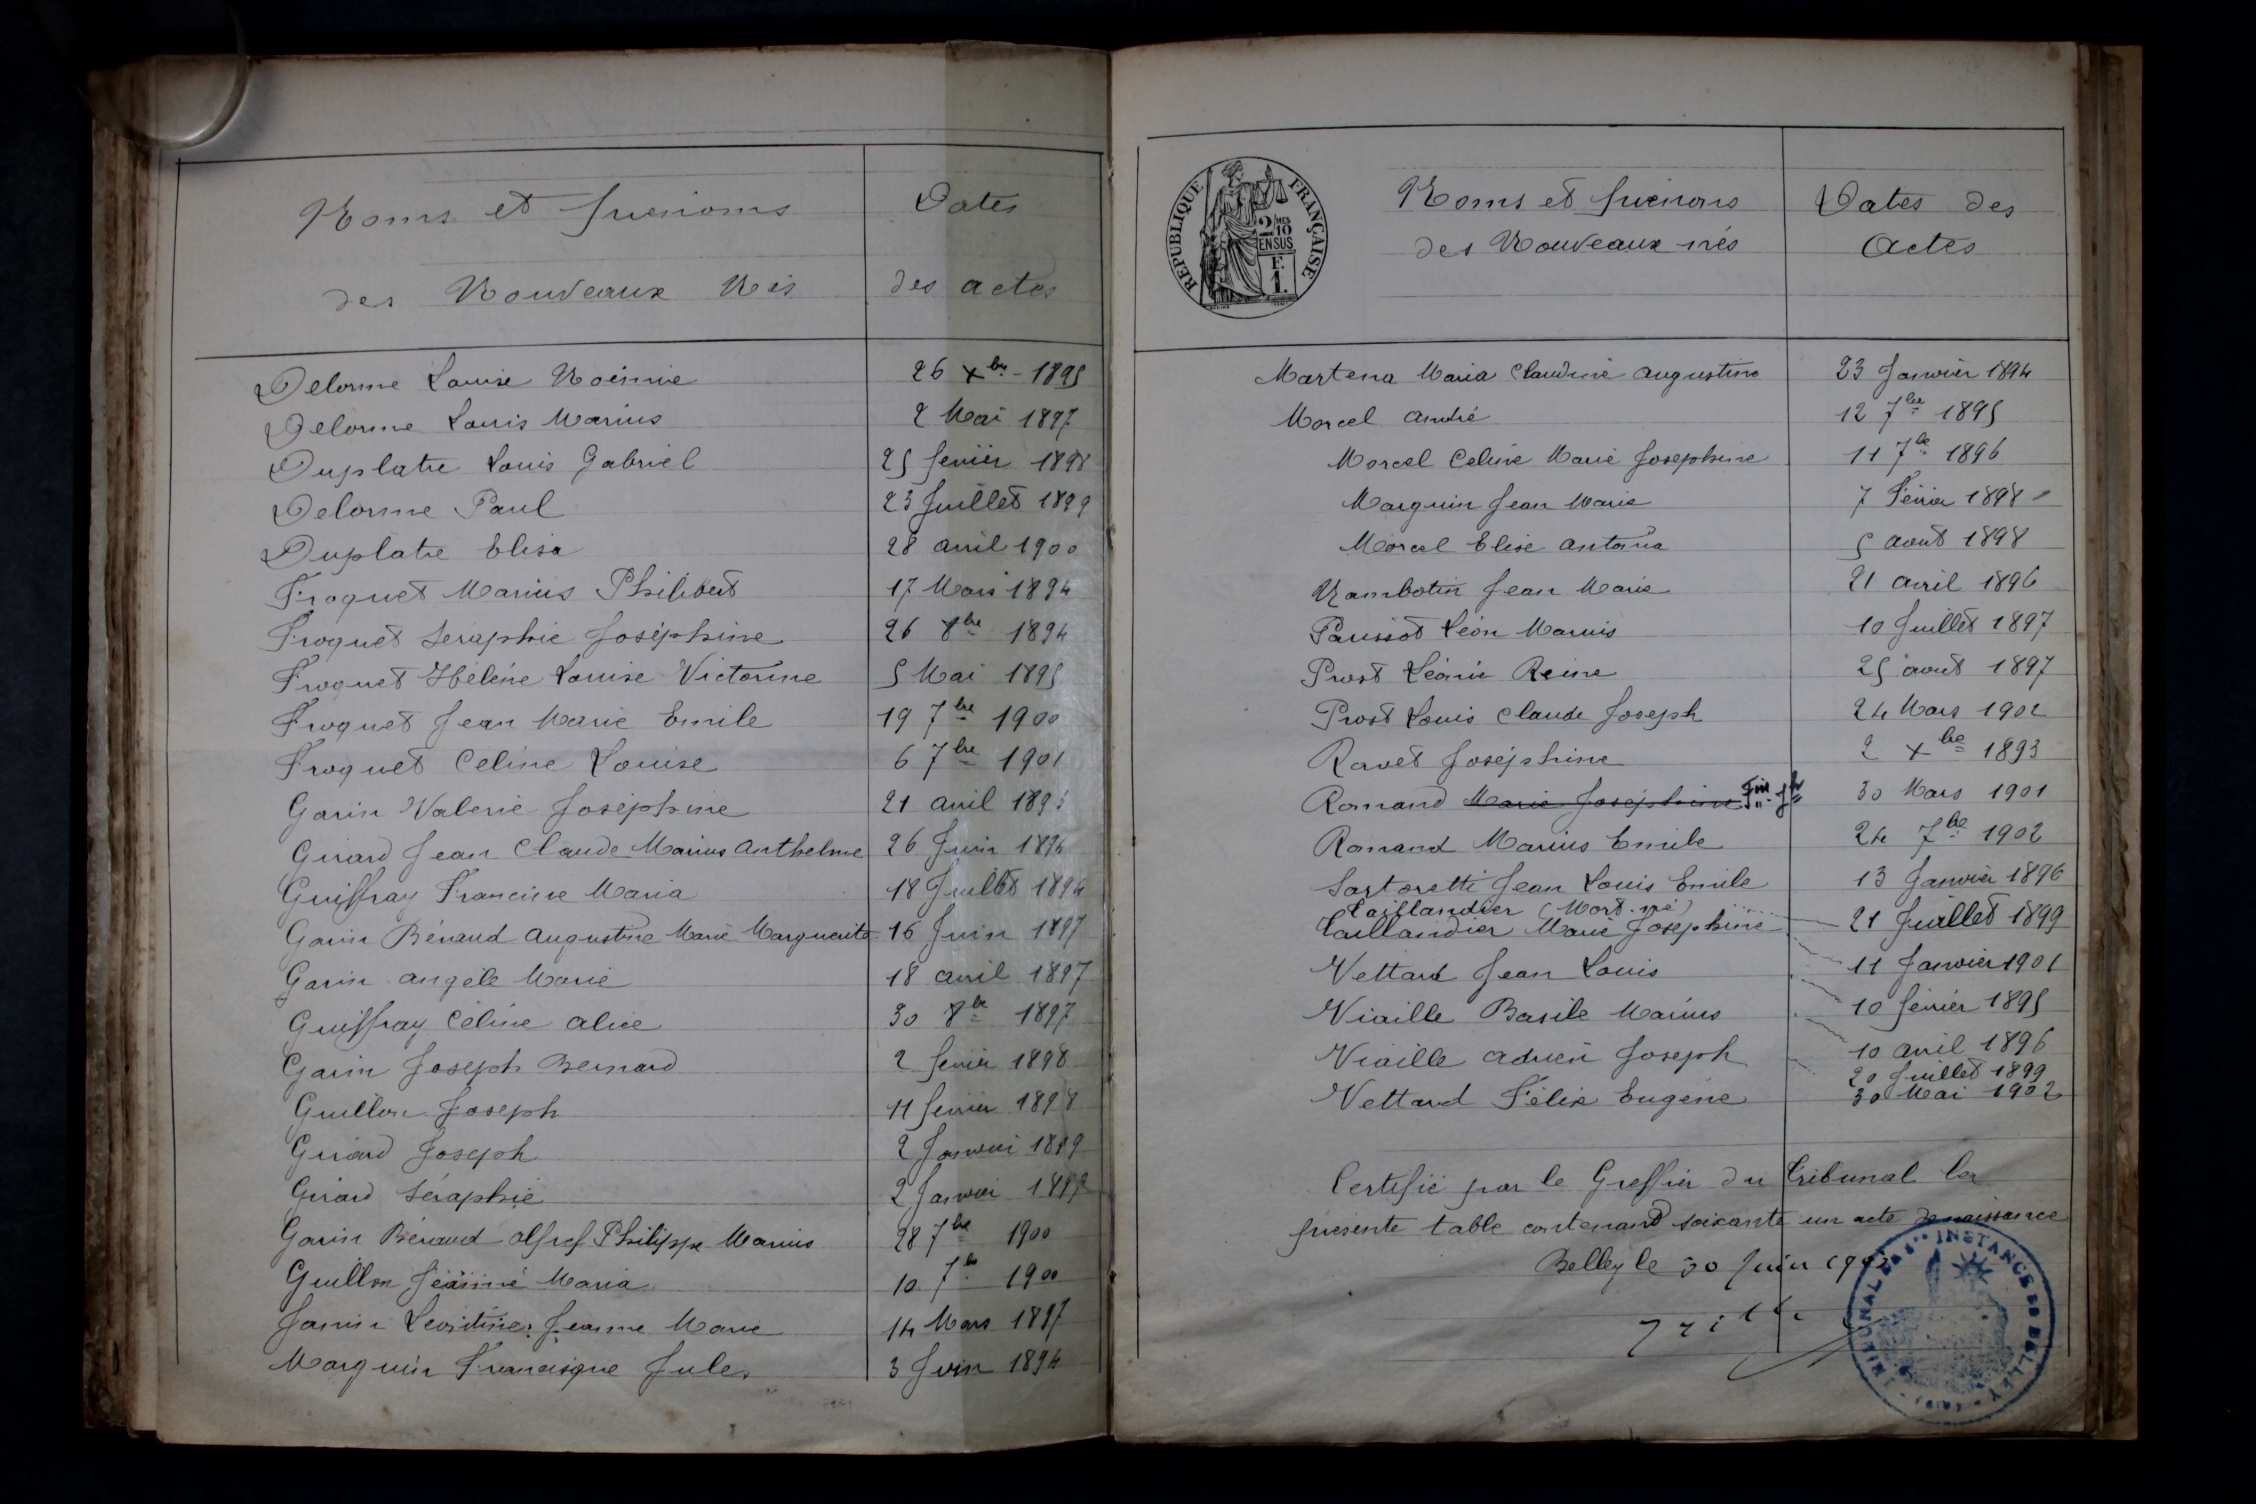 Noms et prénoms
des Nouveaux Nés
Dates
des actes
Delorme Louise Noémie 26 Xbre 1895
Delorme Louis Marius 2 Mai 1897
Duplatre Louis Gabriel 25 fevrier 1898
Delorme Paul 23 Juillet 1899
Duplatre Elisa 28 avril 1900
Froquet Marius Philibert 17 Mars 1894
Froquet Seraphie Joséphine 26 8bre 1894
Froquet Hélène Louise Victorine 5 Mai 1895
Froquet Jean Marie Emile 19 7bre 1900
Froquet Celine Louise 6 7bre 1901
Garin Valerie Joséphine 21 avril 1893
Girard Jean Claude Marius Anthelme 26 Juin 1894
Guiffray Francine Maria 18 Juillet 1894
Garin Bénaud Augustine Marie Marguerite 16 Juin 1897
Garin Angèle Marie 18 avril 1897
Guiffray Céline Alice 30 8bre 1897
Garin Joseph Bernard 2 fevrier 1898
Guillon Joseph 11 fevrier 1898
Girard Joseph 2 Janvier 1899
Girard Séraphie 2 Janvier 1899
Garin Bénaud Alfred Philippe Marius 28 7bre 1900
Guillon Jeanne Maria 10 7bre 1900
Janin Léontine Jeanne Marie 14 Mars 1897
Marguin Francisque Jules 3 Juin 1894
RÉPUBLIQUE FRANÇAISE
2/10 MES
EN SUS
F.
1.
Noms et prénoms
des Nouveaux nés
Dates des
Actes
Martena Maria Claudine Augustine 23 Janvier 1894
Morcel André 12 7bre 1895
Morcel Celine Marie Josephine 11 7bre 1896
Marguin Jean Marie 7 Février 1898
Morcel Elise Antonia 5 août 1898
Nambotin Jean Marie 21 avril 1896
Paussot Léon Marius 10 Juillet 1897
Prost Léonie Reine 25 août 1897
Prost Louis Claude Joseph 24 Mars 1902
Ravet Joséphine 2 Xbre 1893
Romand Marie Joséphine 30 Mars 1901
Romand Marius Emile 24 7bre 1902
Sartoretti Jean Louis Emile 13 Janvier 1896
Taillandier (Mort-né)
Taillandier Marie Josephine 21 Juillet 1899
Vettard Jean Louis 11 Janvier 1901
Viaille Basile Marius 10 février 1895
Viaille Adrien Joseph 10 avril 1896
20 Juillet 1899
Vettard Félix Eugène 30 Mai 1902
Certifié par le Greffier du Tribunal la
présente table contenant soixante un acte de naissance
Belley le 30 Juin 1903
TRIBUNAL DE 1ère INSTANCE DE BELLEY (AIN)